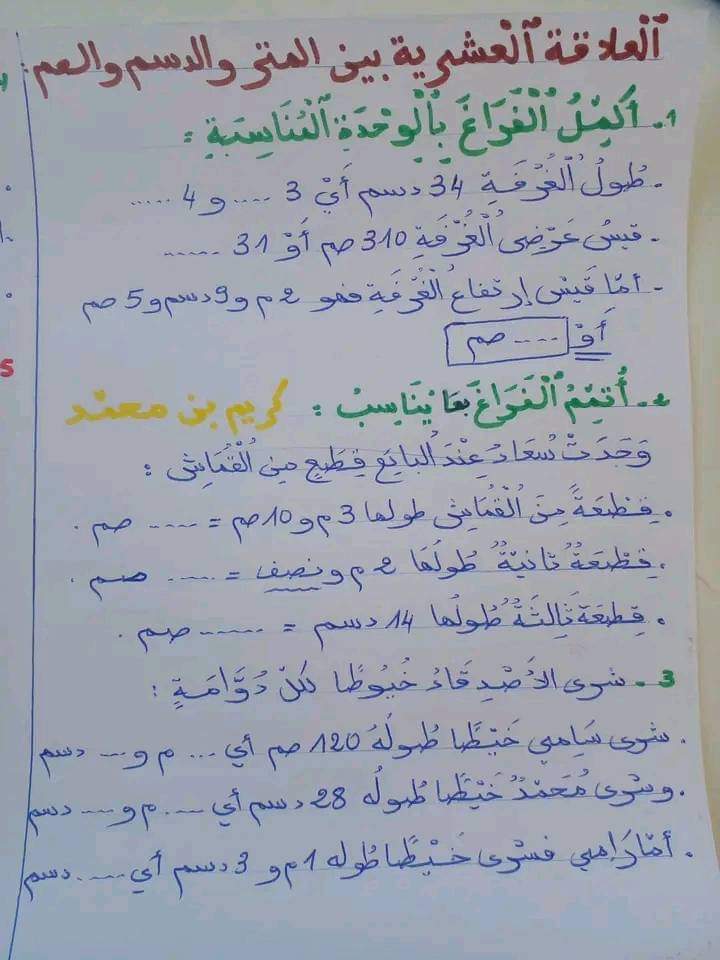 العلاقة العشرية بين المتر والدسم والصم:
1. أكمل الفراغ بالوحدة المناسبة :
- طول الغرفة 34 دسم أي 3 .... و 4 .....
- قيس عرض الغرفة 310 صم أو 31 ......
- أما قيس إرتفاع الغرفة فهو 2 م و9 دسم و5 صم
أو .... صم
2. أتمم الفراغ بما يناسب : كريم بن محمد
وجدت سعاد عند البائع قطع من القماش :
. قطعة من القماش طولها 3 م و10 صم = ..... صم .
. قطعة ثانية طولها 2 م ونصف = ..... صم .
. قطعة ثالثة طولها 14 دسم = ...... صم .
3 - شرى الأصدقاء خيوطا لكل دوامة :
. شرى سامي خيطا طوله 120 صم أي ... م و ... دسم
. وشرى محمد خيطا طوله 28 دسم أي .... م و .... دسم
. أما رامي فشرى خيطا طوله 1 م و 3 دسم أي ..... دسم